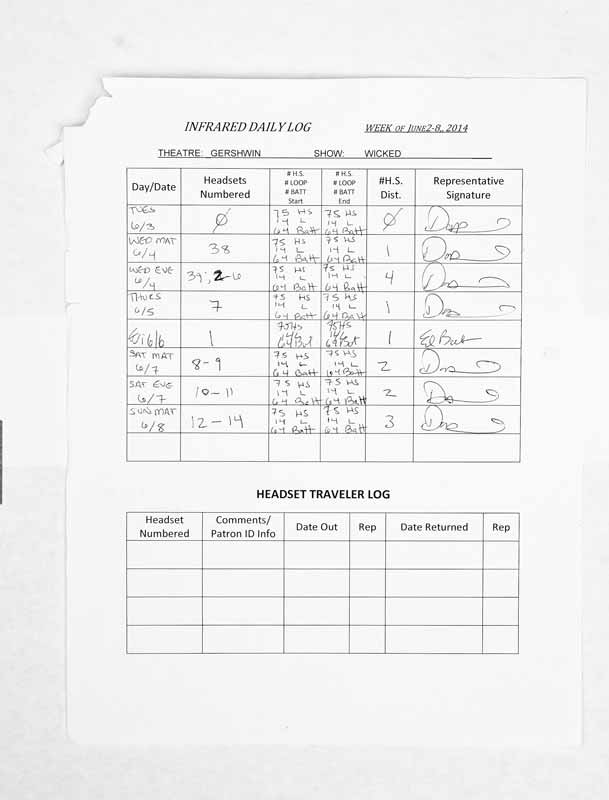 INFRARED DAILY LOG WEEK OF JUNE2-8, 2014
THEATRE: GERSHWIN SHOW: WICKED
Day/Date Headsets Numbered # H.S. # LOOP # BATT Start # H.S. # LOOP # BATT End #H.S. Dist. Representative Signature
TUES 6/3 Ø 75 HS 14 L 64 Batt 75 HS 14 L 64 Batt Ø
WED MAT 6/4 38 75 HS 14 L 64 Batt 75 HS 14 L 64 Batt 1
WED EVE 6/4 39; 2-6 75 HS 14 L 64 Batt 75 HS 14 L 64 Batt 4
THURS 6/5 7 75 HS 14 L 64 Batt 75 HS 14 L 64 Batt 1
Fri 6/6 1 75HS 14L 64Bat 75HS 14L 64Bat 1
SAT MAT 6/7 8-9 75 HS 14 L 64 Batt 75 HS 14 L 64 Batt 2
SAT EVE 6/7 10-11 75 HS 14 L 64 Batt 75 HS 14 L 64 Batt 2
SUN MAT 6/8 12-14 75 HS 14 L 64 Batt 75 HS 14 L 64 Batt 3
HEADSET TRAVELER LOG
Headset Numbered Comments/ Patron ID Info Date Out Rep Date Returned Rep